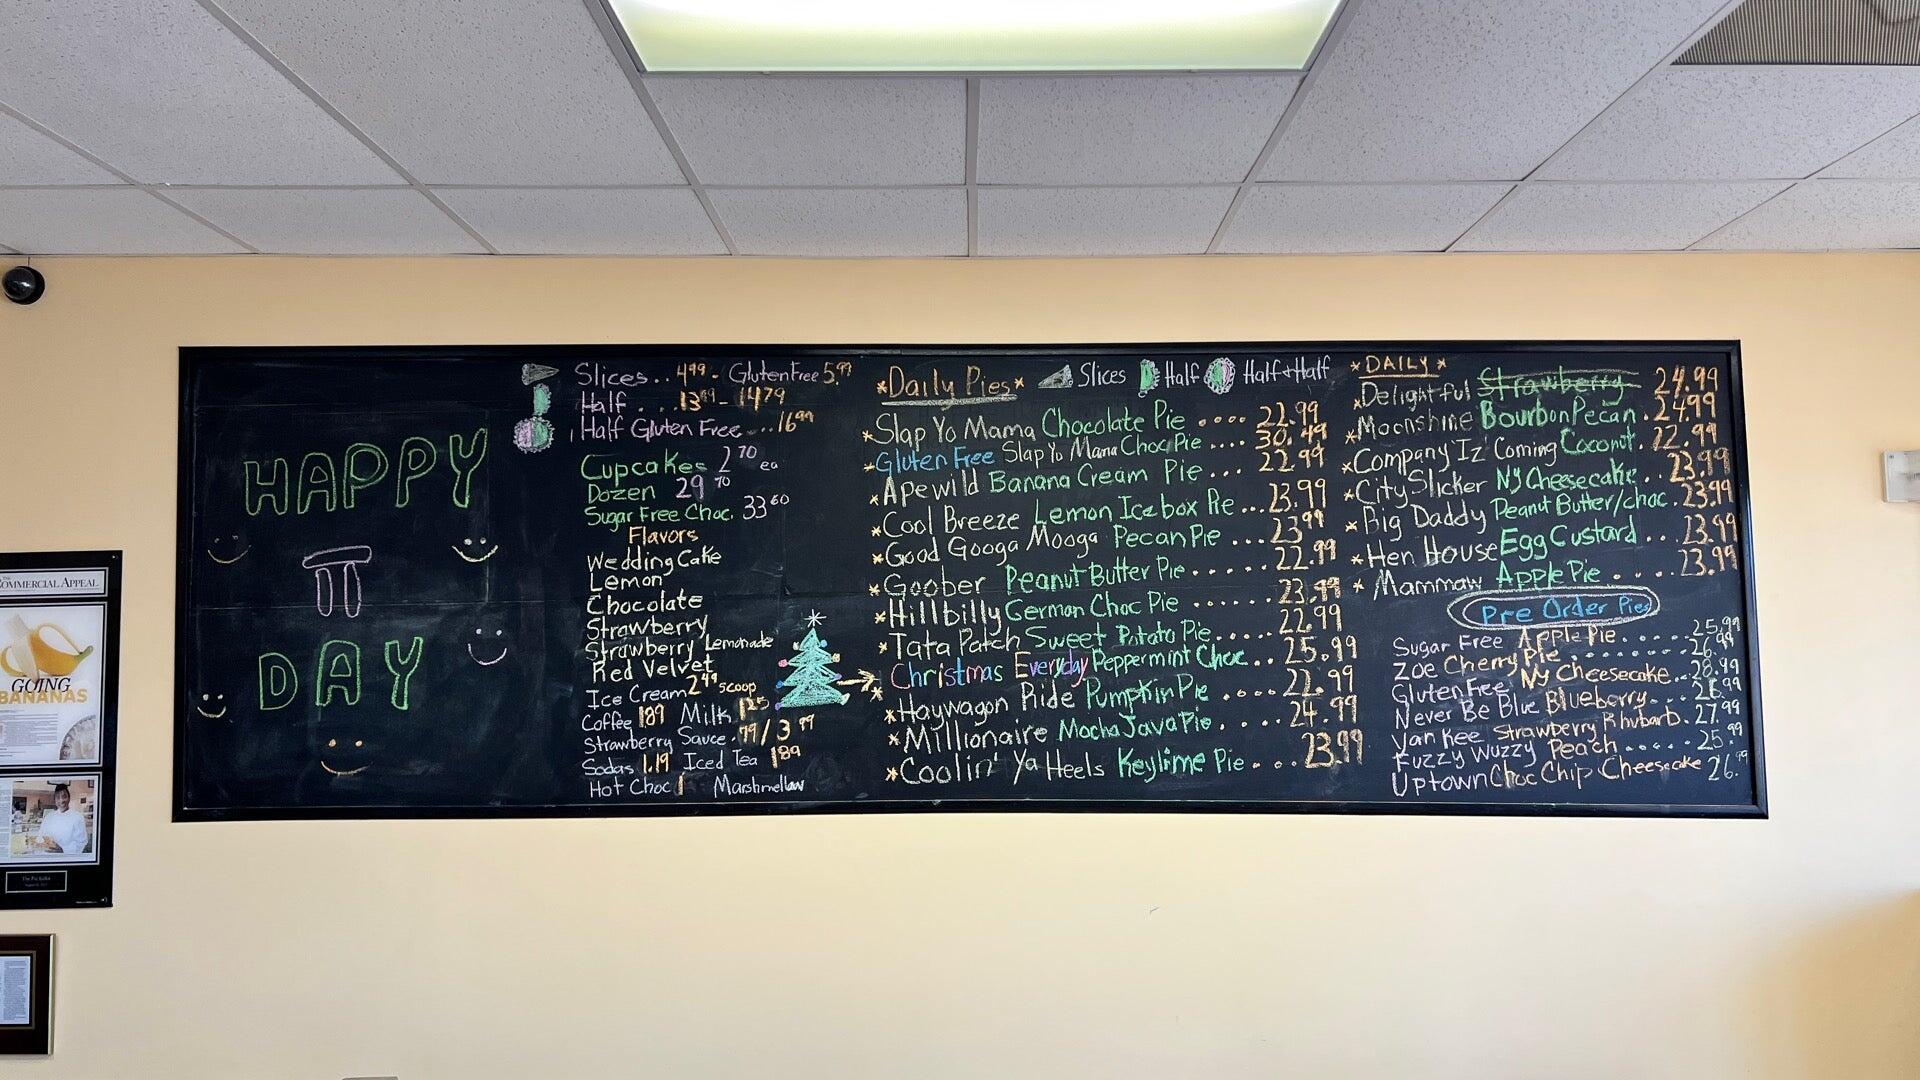 HAPPY
π
DAY
Slices.. 4.99 - Gluten Free 5.99
Half . . . 13.89 - 14.79
Half Gluten Free ... 16.99
Cupcakes 2.70 ea
Dozen 29.70
Sugar Free Choc. 33.60
Flavors
Wedding Cake
Lemon
Chocolate
Strawberry
Strawberry Lemonade
Red Velvet
Ice Cream 2.49 scoop
Coffee 1.89 Milk 1.25
Strawberry Sauce .79 / 3.99
Sodas 1.19 Iced Tea 1.89
Hot Choc Marshmellow
*Daily Pies* Slices Half Half & Half
*Slap Yo Mama Chocolate Pie .... 22.99
*Gluten Free Slap Yo Mama Choc Pie .... 30.49
*Apewild Banana Cream Pie ... 22.99
*Cool Breeze Lemon Icebox Pie ... 23.99
*Good Googa Mooga Pecan Pie ... 23.99
*Goober Peanut Butter Pie ...... 22.99
*Hillbilly German Choc Pie ...... 23.99
*Tata Patch Sweet Potato Pie..... 22.99
Christmas Everyday Peppermint Choc .. 25.99
*Haywagon Ride Pumpkin Pie .... 22.99
*Millionaire Mocha Java Pie .... 24.99
*Coolin' Ya Heels Keylime Pie ... 23.99
*DAILY*
*Delightful Strawberry 24.99
*Moonshine Bourbon Pecan . 24.99
*Company Iz Coming Coconut. 22.99
*City Slicker NY Cheesecake. 23.99
*Big Daddy Peanut Butter/choc . 23.99
*Hen House Egg Custard ... 23.99
*Mammaw Apple Pie ..... 23.99
Pre Order Pies
Sugar Free Apple Pie ...... 25.99
Zoe Cherry Pie ........ 26.99
Gluten Free NY Cheesecake .. 28.99
Never Be Blue Blueberry....
Yan Kee Strawberry Rhubarb. 27.99
Fuzzy Wuzzy Peach ..... 25.99
Uptown Choc Chip Cheesecake 26.99
COMMERCIAL APPEAL
GOING
BANANAS